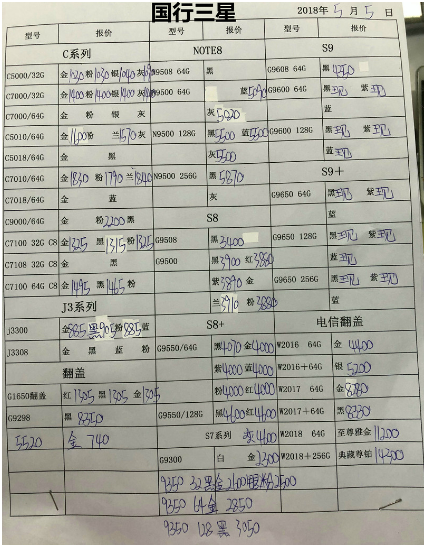 国行三星
2018年5月5日
型号 报价 型号 报价 型号 报价
C系列 NOTE8 S9
C5000/32G 金1030 粉 银1040 灰 N9508 64G 黑 G9608 64G 黑4350
C7000/32G 金1400 粉1400 银1400 灰 N9500 64G 蓝5090 G9600 64G 黑 紫
C7000/64G 金 粉 银 灰 灰5020 蓝
C5010/64G 金1600 粉 兰1570 灰 N9500 128G 黑5500 蓝5500 G9600 128G 黑 紫
C5018/64G 金 黑 灰5500 蓝
C7010/64G 金1830 粉1790 兰1840 N9500 256G 黑5870 S9+
C7018/64G 金 蓝 灰 G9650 64G 黑 紫
C9000/64G 金 粉2200 黑 S8 蓝
C7100 32G C8 金1325 黑1315 粉1325 G9508 黑3400 G9650 128G 黑 紫
C7108 32G C8 金 黑 G9500 黑3900 红3880 蓝
C7100 64G C8 金1495 黑1465 粉 紫3890 金 G9650 256G 黑 紫
兰3910 粉3880 蓝
J3系列 S8+ 电信翻盖
J3300 金885 黑905 粉885 蓝 G9550/64G 黑4070 金4000 W2016 64G 金4400
J3308 金 黑 蓝 粉 紫4000 蓝4000 W2016+64G 银5200
翻盖 粉4000 红4000 W2017 64G 金8780
G1650翻盖 红1305 黑1305 金1305 G9550/128G 黑4600 红4600 W2017+64G 黑8230
G9298 黑8350 S7系列 灰4600 W2018 64G 至尊雅金11200
5520 金740 G9300 白 金2300 W2018+256G 典藏尊铂14300
9350 32 黑金2600 粉2500
9350 64金 2850
9350 128 黑 3050